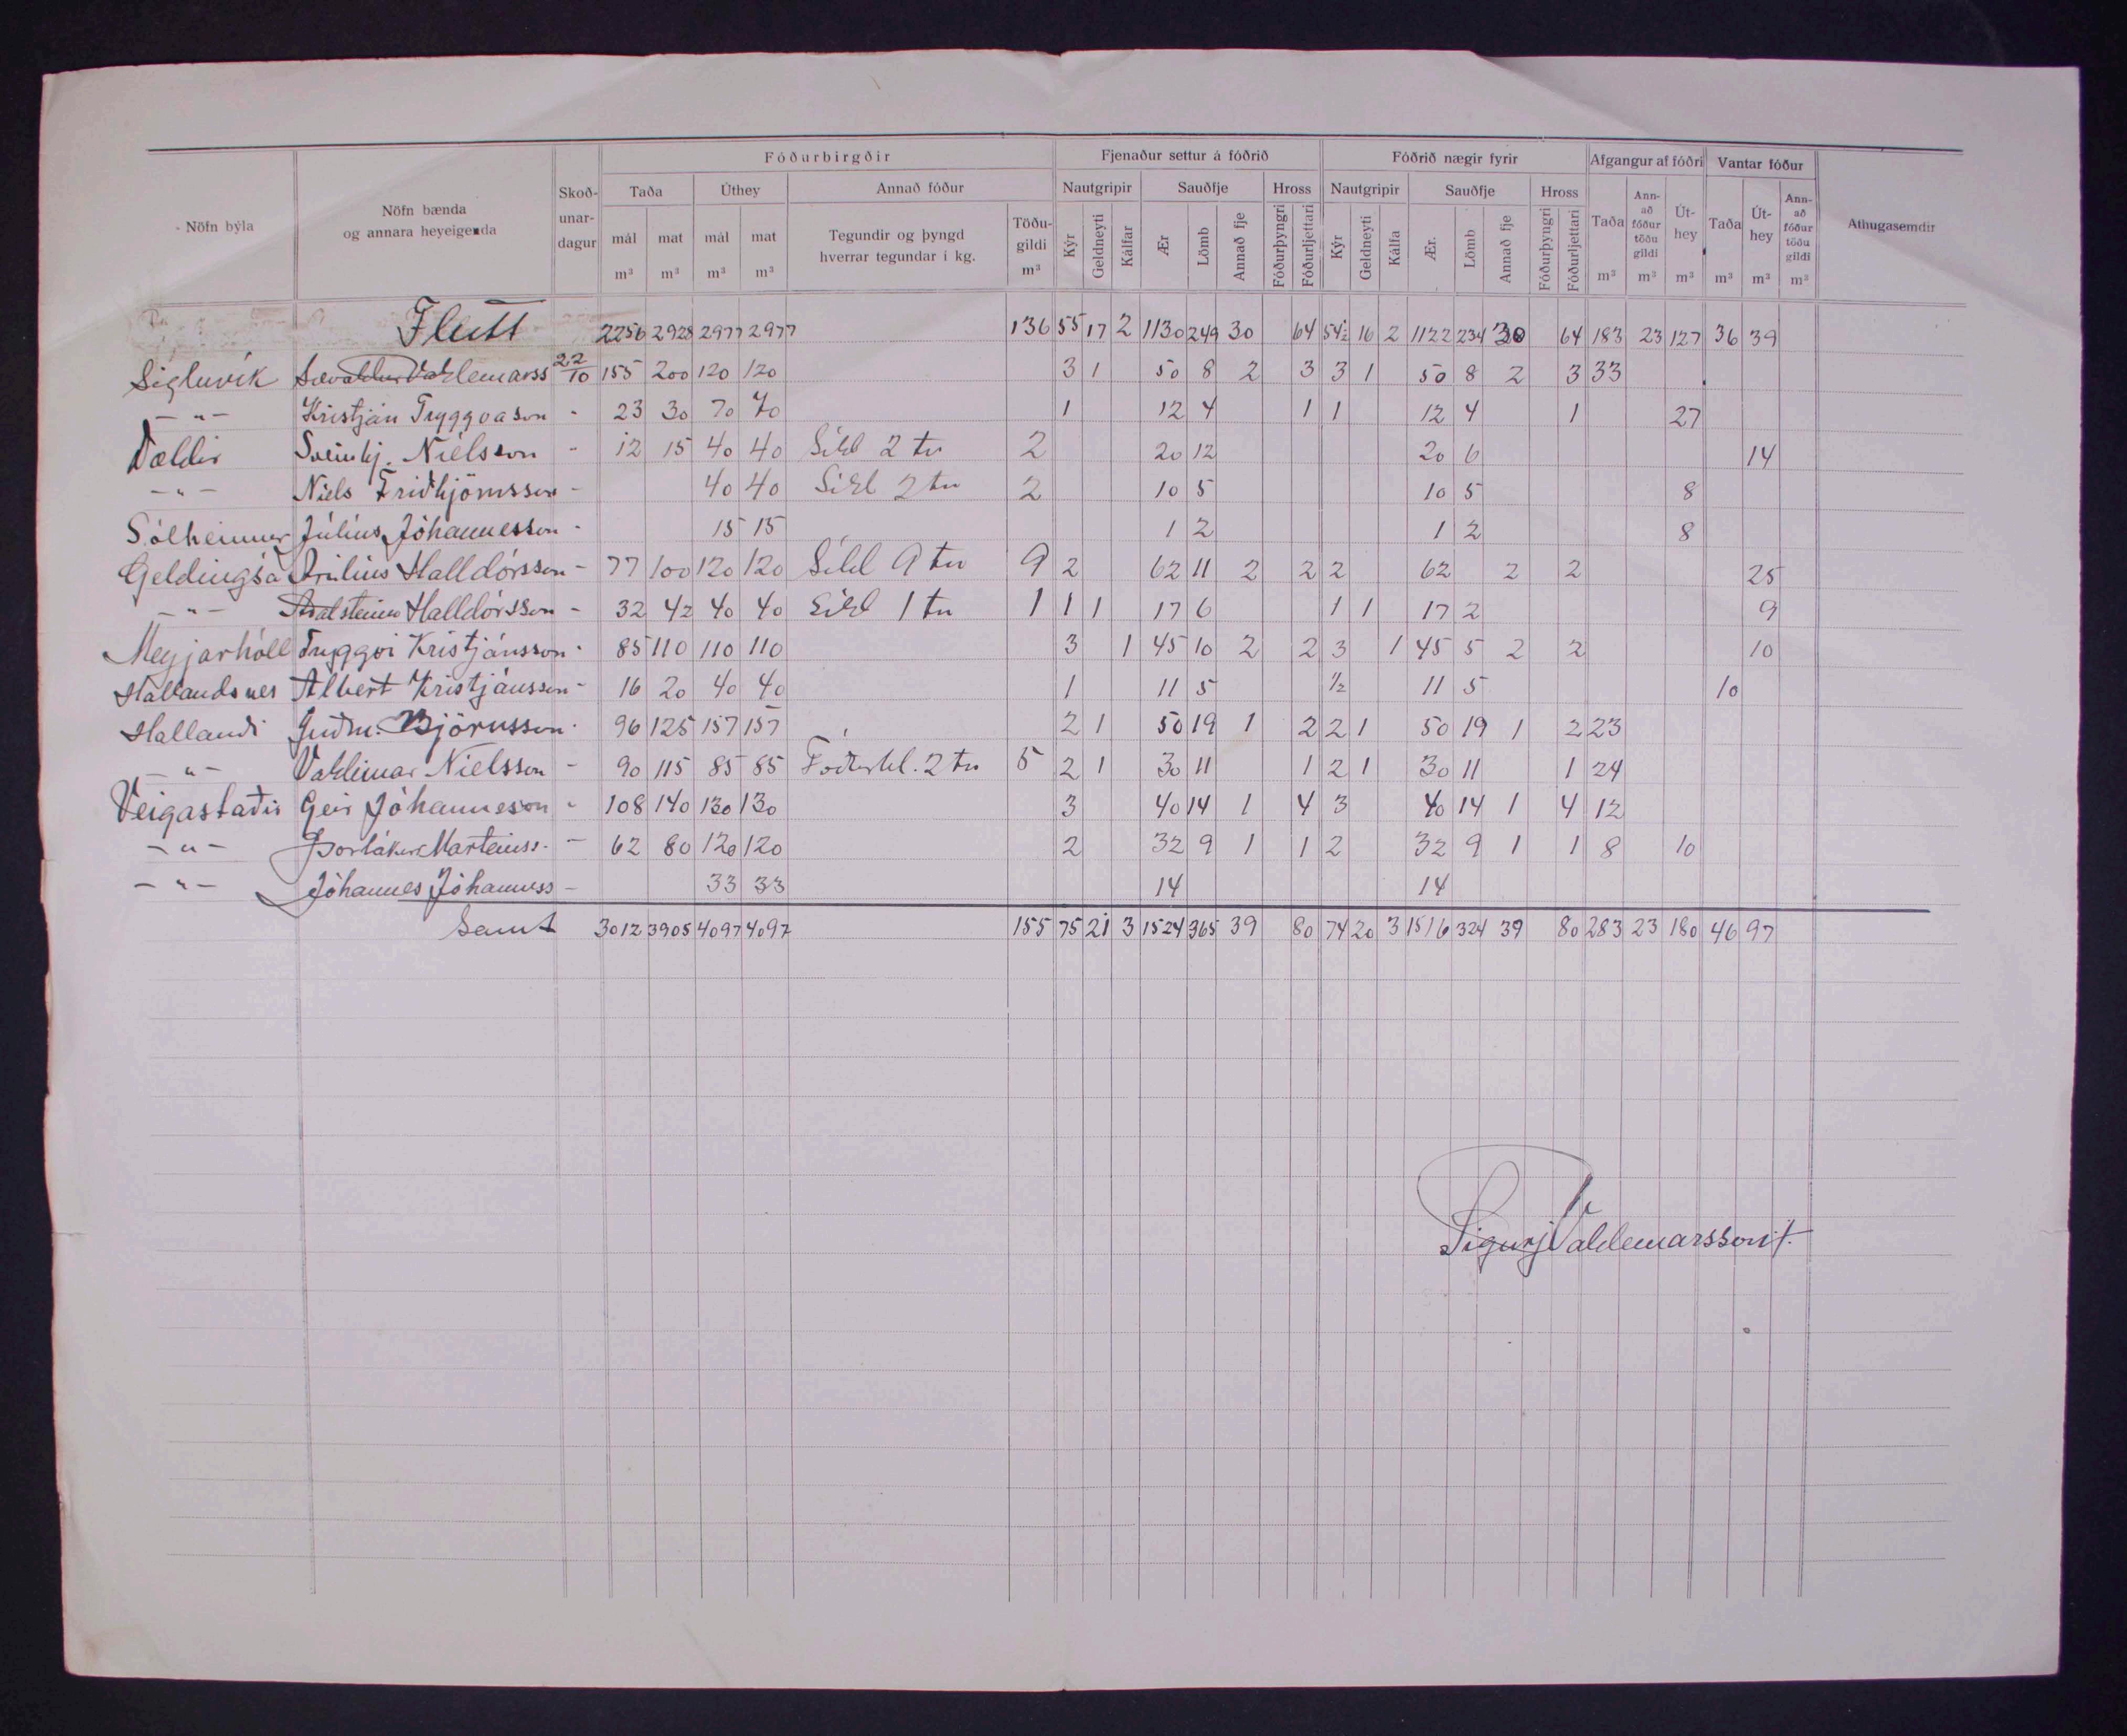 Nöfn býla
Nöfn bænda og annara heyeigenda
Skoð-unar-dagur
Fóðurbirgðir
Fjenaður settur á fóðrið
Fóðrið nægir fyrir
Afgangur af fóðri
Vantar fóður
Athugasemdir
Taða Úthey Annað fóður
Nautgripir Sauðfje Hross Nautgripir Sauðfje Hross
mál m³ mat m³ mál m³ mat m³ Tegundir og þyngd hverrar tegundar í kg. Töðu-gildi m³
Kýr Geldneyti Kálfar Ær Lömb Annað fje Fóðurþyngri Fóðurljettari
Kýr Geldneyti Kálfa Ær. Lömb Annað fje Fóðurþyngri Fóðurljettari
Taða m³ Ann-að fóður töðu gildi m³ Út-hey m³ Taða m³ Út-hey m³ Ann-að fóður töðu gildi m³
Flutt 2256 2928 2977 2977 136 55 17 2 1130 249 30 64 54½ 16 2 1122 234 30 64 183 23 127 36 39
Sigluvík Sævaldur Valdemarss 22/10 155 200 120 120 3 1 50 8 2 3 3 1 50 8 2 3 33
-"- Kristján Tryggvason - 23 30 70 70 1 12 4 1 1 12 4 1 27
Vældir Sveinbj. Níelsson - 12 15 40 40 Síld 2 tn 2 20 12 20 6 14
-"- Níels Friðbjörnsson - 40 40 Síld 2 tn 2 10 5 10 5 8
Sólheimar Júlíus Jóhannesson - 15 15 1 2 1 2 8
Geldingsá Júlíus Halldórsson - 77 100 120 120 Síld 9 tn 9 2 62 11 2 2 2 62 2 2 25
-"- Aðalsteinn Halldórsson - 32 42 40 40 Síld 1 tn 1 1 1 17 6 1 1 17 2 9
Meyjarhóll Tryggvi Kristjánsson - 85 110 110 110 3 1 45 10 2 2 3 1 45 5 2 2 10
Hallandsnes Albert Kristjánsson - 16 20 40 40 1 11 5 ½ 11 5 10
Hallandi Guðm. Björnsson - 96 125 157 157 2 1 50 19 1 2 2 1 50 19 1 2 23
-"- Valdimar Níelsson - 90 115 85 85 Fóðurbl. 2 tn 5 2 1 30 11 1 2 1 30 11 1 24
Veigastaðir Geir Jóhannesson - 108 140 130 130 3 40 14 1 4 3 40 14 1 4 12
-"- Þorlákur Marteinss. - 62 80 120 120 2 32 9 1 1 2 32 9 1 1 8 10
-"- Jóhannes Jóhanness - 33 33 14 14
Samt 3012 3905 4097 4097 155 75 21 3 1524 365 39 80 74 20 3 1516 324 39 80 283 23 180 46 97
Sigurj Valdemarsson